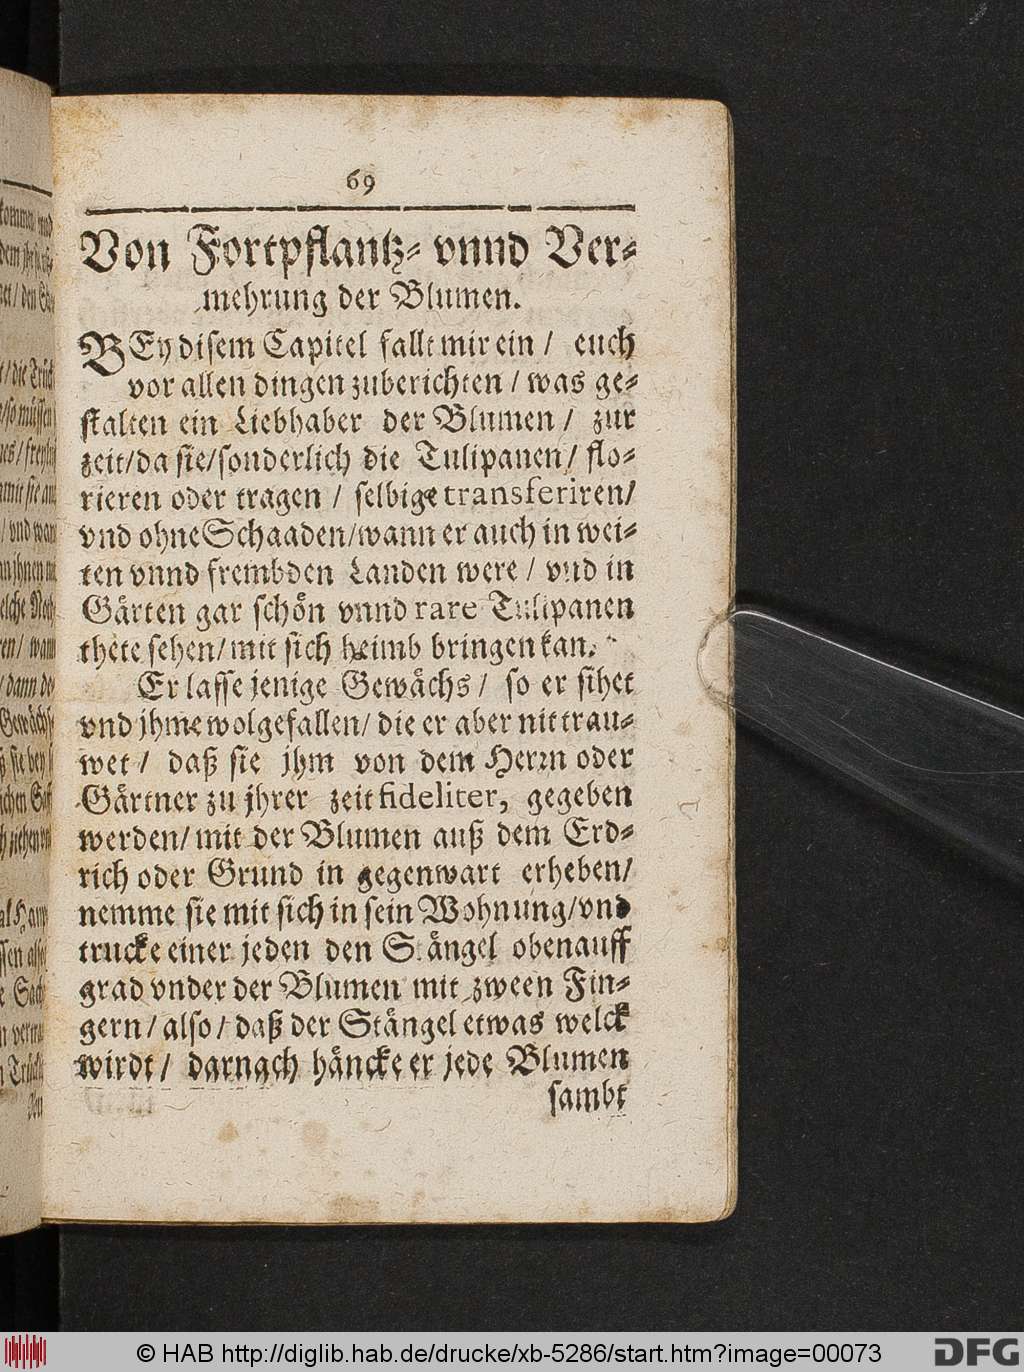 69
Von Fortpflantz- vnnd Ver-
mehrung der Blumen.
BEy disem Capitel fallt mir ein / euch
vor allen dingen zuberichten / was ge-
stalten ein Liebhaber der Blumen / zur
zeit/da sie/sonderlich die Tulipanen/ flo-
rieren oder tragen / selbige transferiren/
vnd ohne Schaaden/wann er auch in wei-
ten vnnd frembden Landen were / vnd in
Gärten gar schön vnnd rare Tulipanen
thete sehen/mit sich heimb bringen kan.
Er lasse jenige Gewächs / so er sihet
vnd jhme wolgefallen/ die er aber nit trau-
wet / daß sie jhm von dem Herrn oder
Gärtner zu jhrer zeit fideliter, gegeben
werden/mit der Blumen auß dem Erd-
rich oder Grund in gegenwart erheben/
nemme sie mit sich in sein Wohnung/vnd
trucke einer jeden den Stängel obenauff
grad vnder der Blumen mit zween Fin-
gern / also / daß der Stängel etwas welck
wirdt / darnach häncke er jede Blumen
sambt
© HAB http://diglib.hab.de/drucke/xb-5286/start.htm?image=00073
DFG